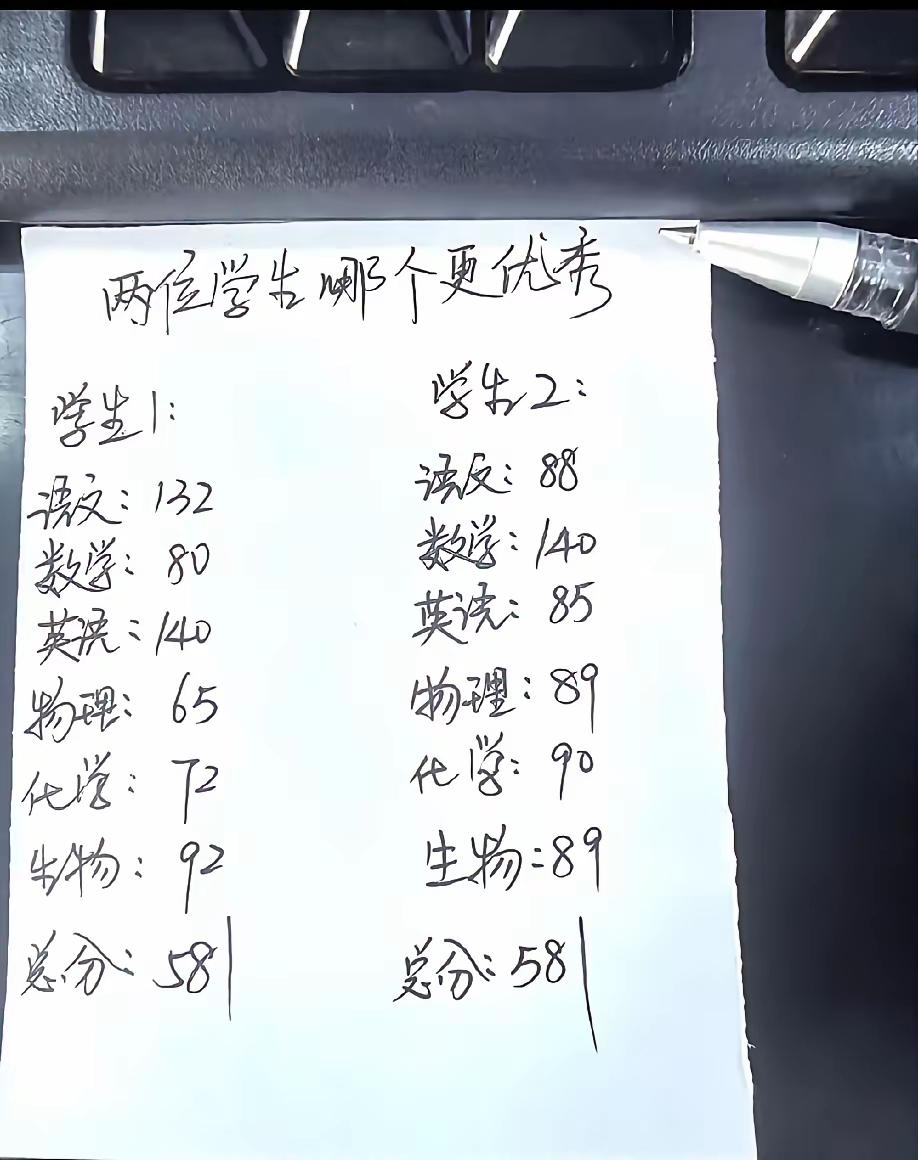 两位学生哪个更优秀
学生1:
语文: 132
数学: 80
英语: 140
物理: 65
化学: 72
生物: 92
总分: 581
学生2:
语文: 88
数学: 140
英语: 85
物理: 89
化学: 90
生物: 89
总分: 581